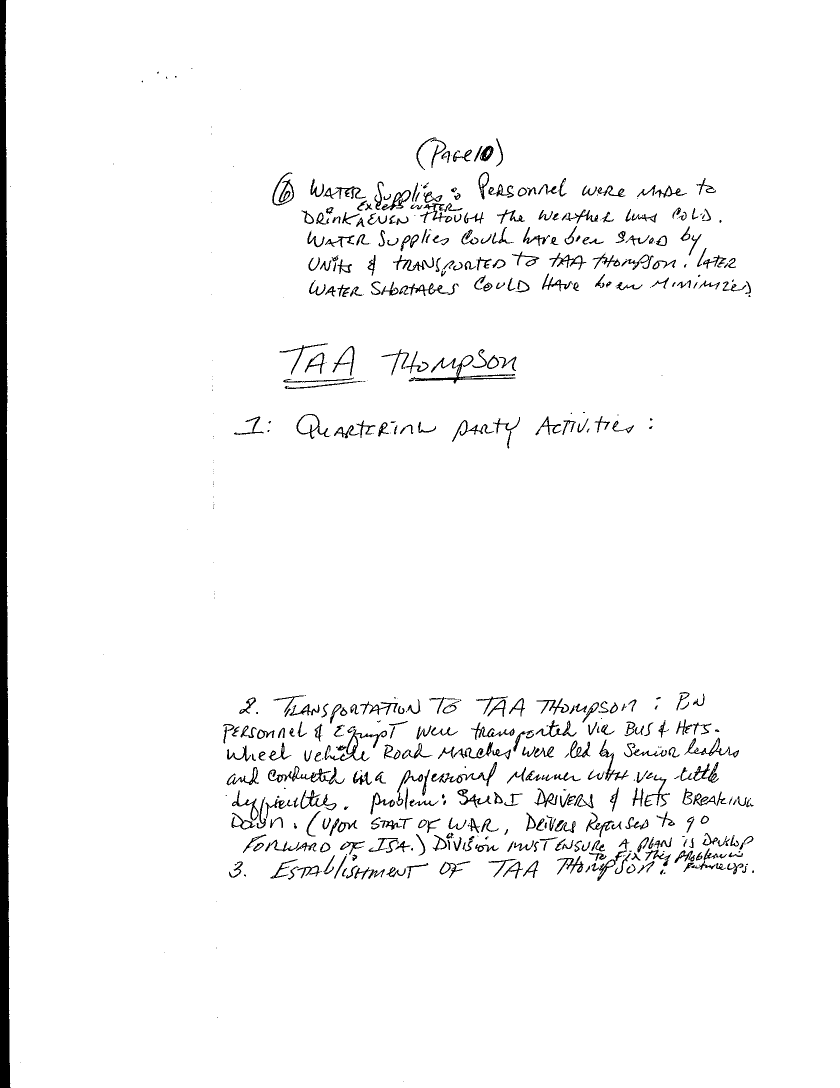 (PAGE 10)
⑥ WATER Supplies: Personnel were made to
excess water
DRINK EVEN THOUGH the weather was COLD.
WATER Supplies Could have been SAVED by
UNITS & TRANSPORTED TO TAA THOMPSON. LATER
WATER SHORTAGES COULD HAVE been MINIMIZED
TAA THOMPSON
1: QUARTERING PARTY ACTIVITIES:
2. TRANSPORTATION TO TAA THOMPSON: BN
PERSONNEL & EQUIPT were transported via BUS & HETS.
Wheel vehicle Road MARCHES were led by Senior leaders
and conducted in a professional manner with very little
difficulties. Problem: SAUDI DRIVERS & HETS BREAKING
DOWN. (UPON START OF WAR, DRIVERS REFUSED to go
FORWARD OF ISA.) DIVISION MUST ENSURE A PLAN is Develop
to FIX this problem in
future ops.
3. ESTABLISHMENT OF TAA THOMPSON: